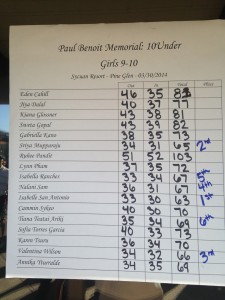 Paul Benoit Memorial: 10Under
Girls 9-10
Sycuan Resort - Pine Glen - 03/10/2014
Out In Total Place
Eden Cahill 46 35
Iiyo Dalal 40 37 77
Kiana Glossner 43 38 81
Jweta Gopal 43 39 82
Gabriella Kano 38 35 73
Sriya Mupparaju 34 31 65 2nd
Ruhee Pandit 51 52 103
Lynn Pham 37 35 72
Isabella Ranches 33 34 67 5th
Nalani Sam 36 31 67 4th
Isabelle San Antonio 33 30 63 1st
Cammin Sykes 40 30 70
Tiana Teatai Ariki 35 34 6th
Sofia Torres Garcia 40 33 73
Karen Tsuru 36 34 70
Valentina Wilson 34 32 66 3rd
Annika 34 35 69